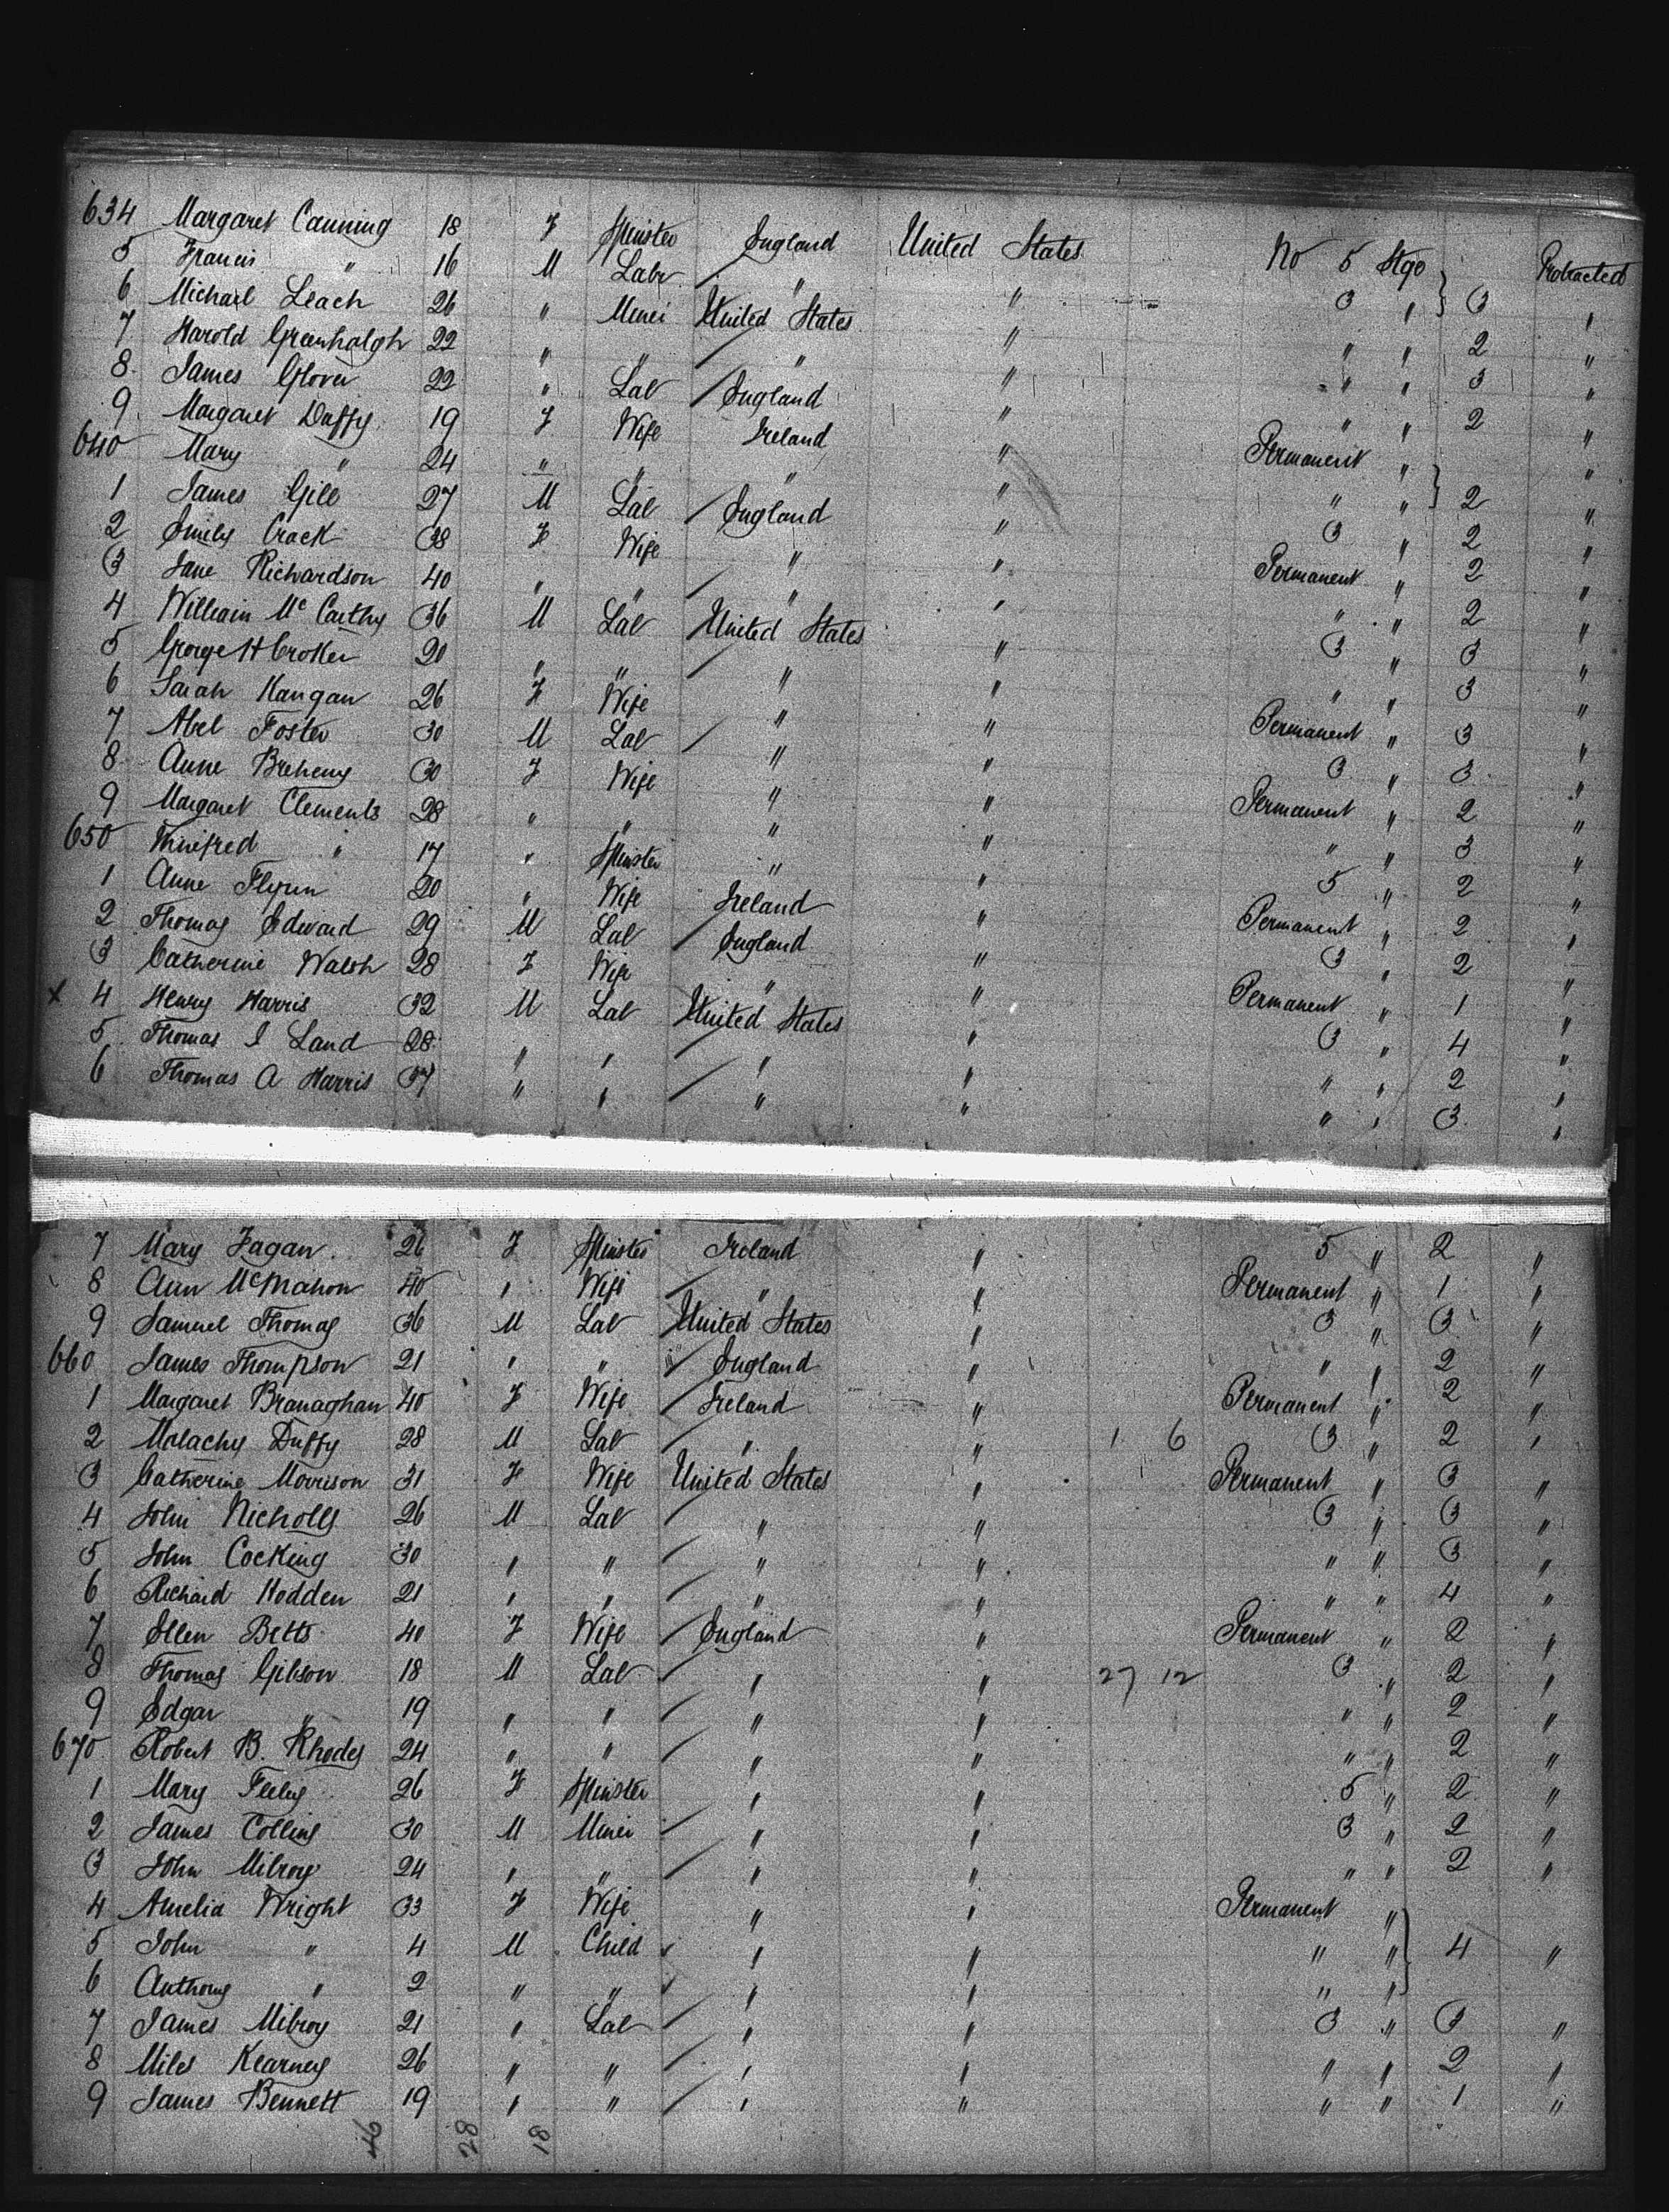 634 Margaret Canning 18 F Spinster England United States No 5 Stge Protracted
5 Francis " 16 M Labr " " 3 " 3 "
6 Michael Leach 26 " Miner United States " " " 2 "
7 Harold Greenhalgh 22 " " " " " " 3 "
8 James Glover 22 " Lab England " " " 2 "
9 Margaret Duffy 19 F Wife Ireland " Permanent " "
640 Mary " 24 " " " " " " 2 "
1 James Gill 27 M Lab England " 3 " 2 "
2 Emily Crack 38 F Wife " " Permanent " 2 "
3 Jane Richardson 40 " " " " " " 2 "
4 William Mc Carthy 36 M Lab United States " 3 " 3 "
5 George H Crocker 20 " " " " " " 3 "
6 Sarah Kangan 26 F Wife " " Permanent " 3 "
7 Abel Foster 30 M Lab " " 3 " 3 "
8 Anne Breheny 30 F Wife " " Permanent " 2 "
9 Margaret Clements 28 " " " " " " 3 "
650 Winifred " 17 " Spinster " " 5 " 2 "
1 Anne Flynn 20 " Wife Ireland " Permanent " 2 "
2 Thomas Edward 29 M Lab England " 3 " 2 "
3 Catherine Walsh 28 F Wife " " Permanent " 1 "
x 4 Henry Harris 32 M Lab United States " 3 " 4 "
5 Thomas J Land 28 " " " " " " 2 "
6 Thomas A Harris 37 " " " " " " 3 "
7 Mary Fagan 26 F Spinster Ireland " 5 " 2 "
8 Ann McMahon 40 " Wife " " Permanent " 1 "
9 Samuel Thomas 36 M Lab United States " 3 " 3 "
660 James Thompson 21 " " England " " " 2 "
1 Margaret Branaghan 40 F Wife Ireland " Permanent " 2 "
2 Malachy Duffy 28 M Lab " " 1 6 3 " 2 "
3 Catherine Morrison 31 F Wife United States " Permanent " 3 "
4 John Nicholls 26 M Lab " " 3 " 3 "
5 John Cocking 30 " " " " " " 3 "
6 Richard Hodden 21 " " " " " " 4 "
7 Ellen Betts 40 F Wife England " Permanent " 2 "
8 Thomas Gibson 18 M Lab " " 27 12 3 " 2 "
9 Edgar " 19 " " " " " " 2 "
670 Robert B. Rhodes 24 " " " " " " 2 "
1 Mary Feeley 26 F Spinster " " 5 " 2 "
2 James Collins 30 M Miner " " 3 " 2 "
3 John Milroy 24 " " " " " " 2 "
4 Amelia Wright 33 F Wife " " Permanent "
5 John " 4 M Child " " " " 4 "
6 Anthony " 2 " " " " " "
7 James Milroy 21 " Lab " " 3 " 3 "
8 Miles Kearney 26 " " " " " " 2 "
9 James Bennett 19 " " " " " " 1 "
46 28 18